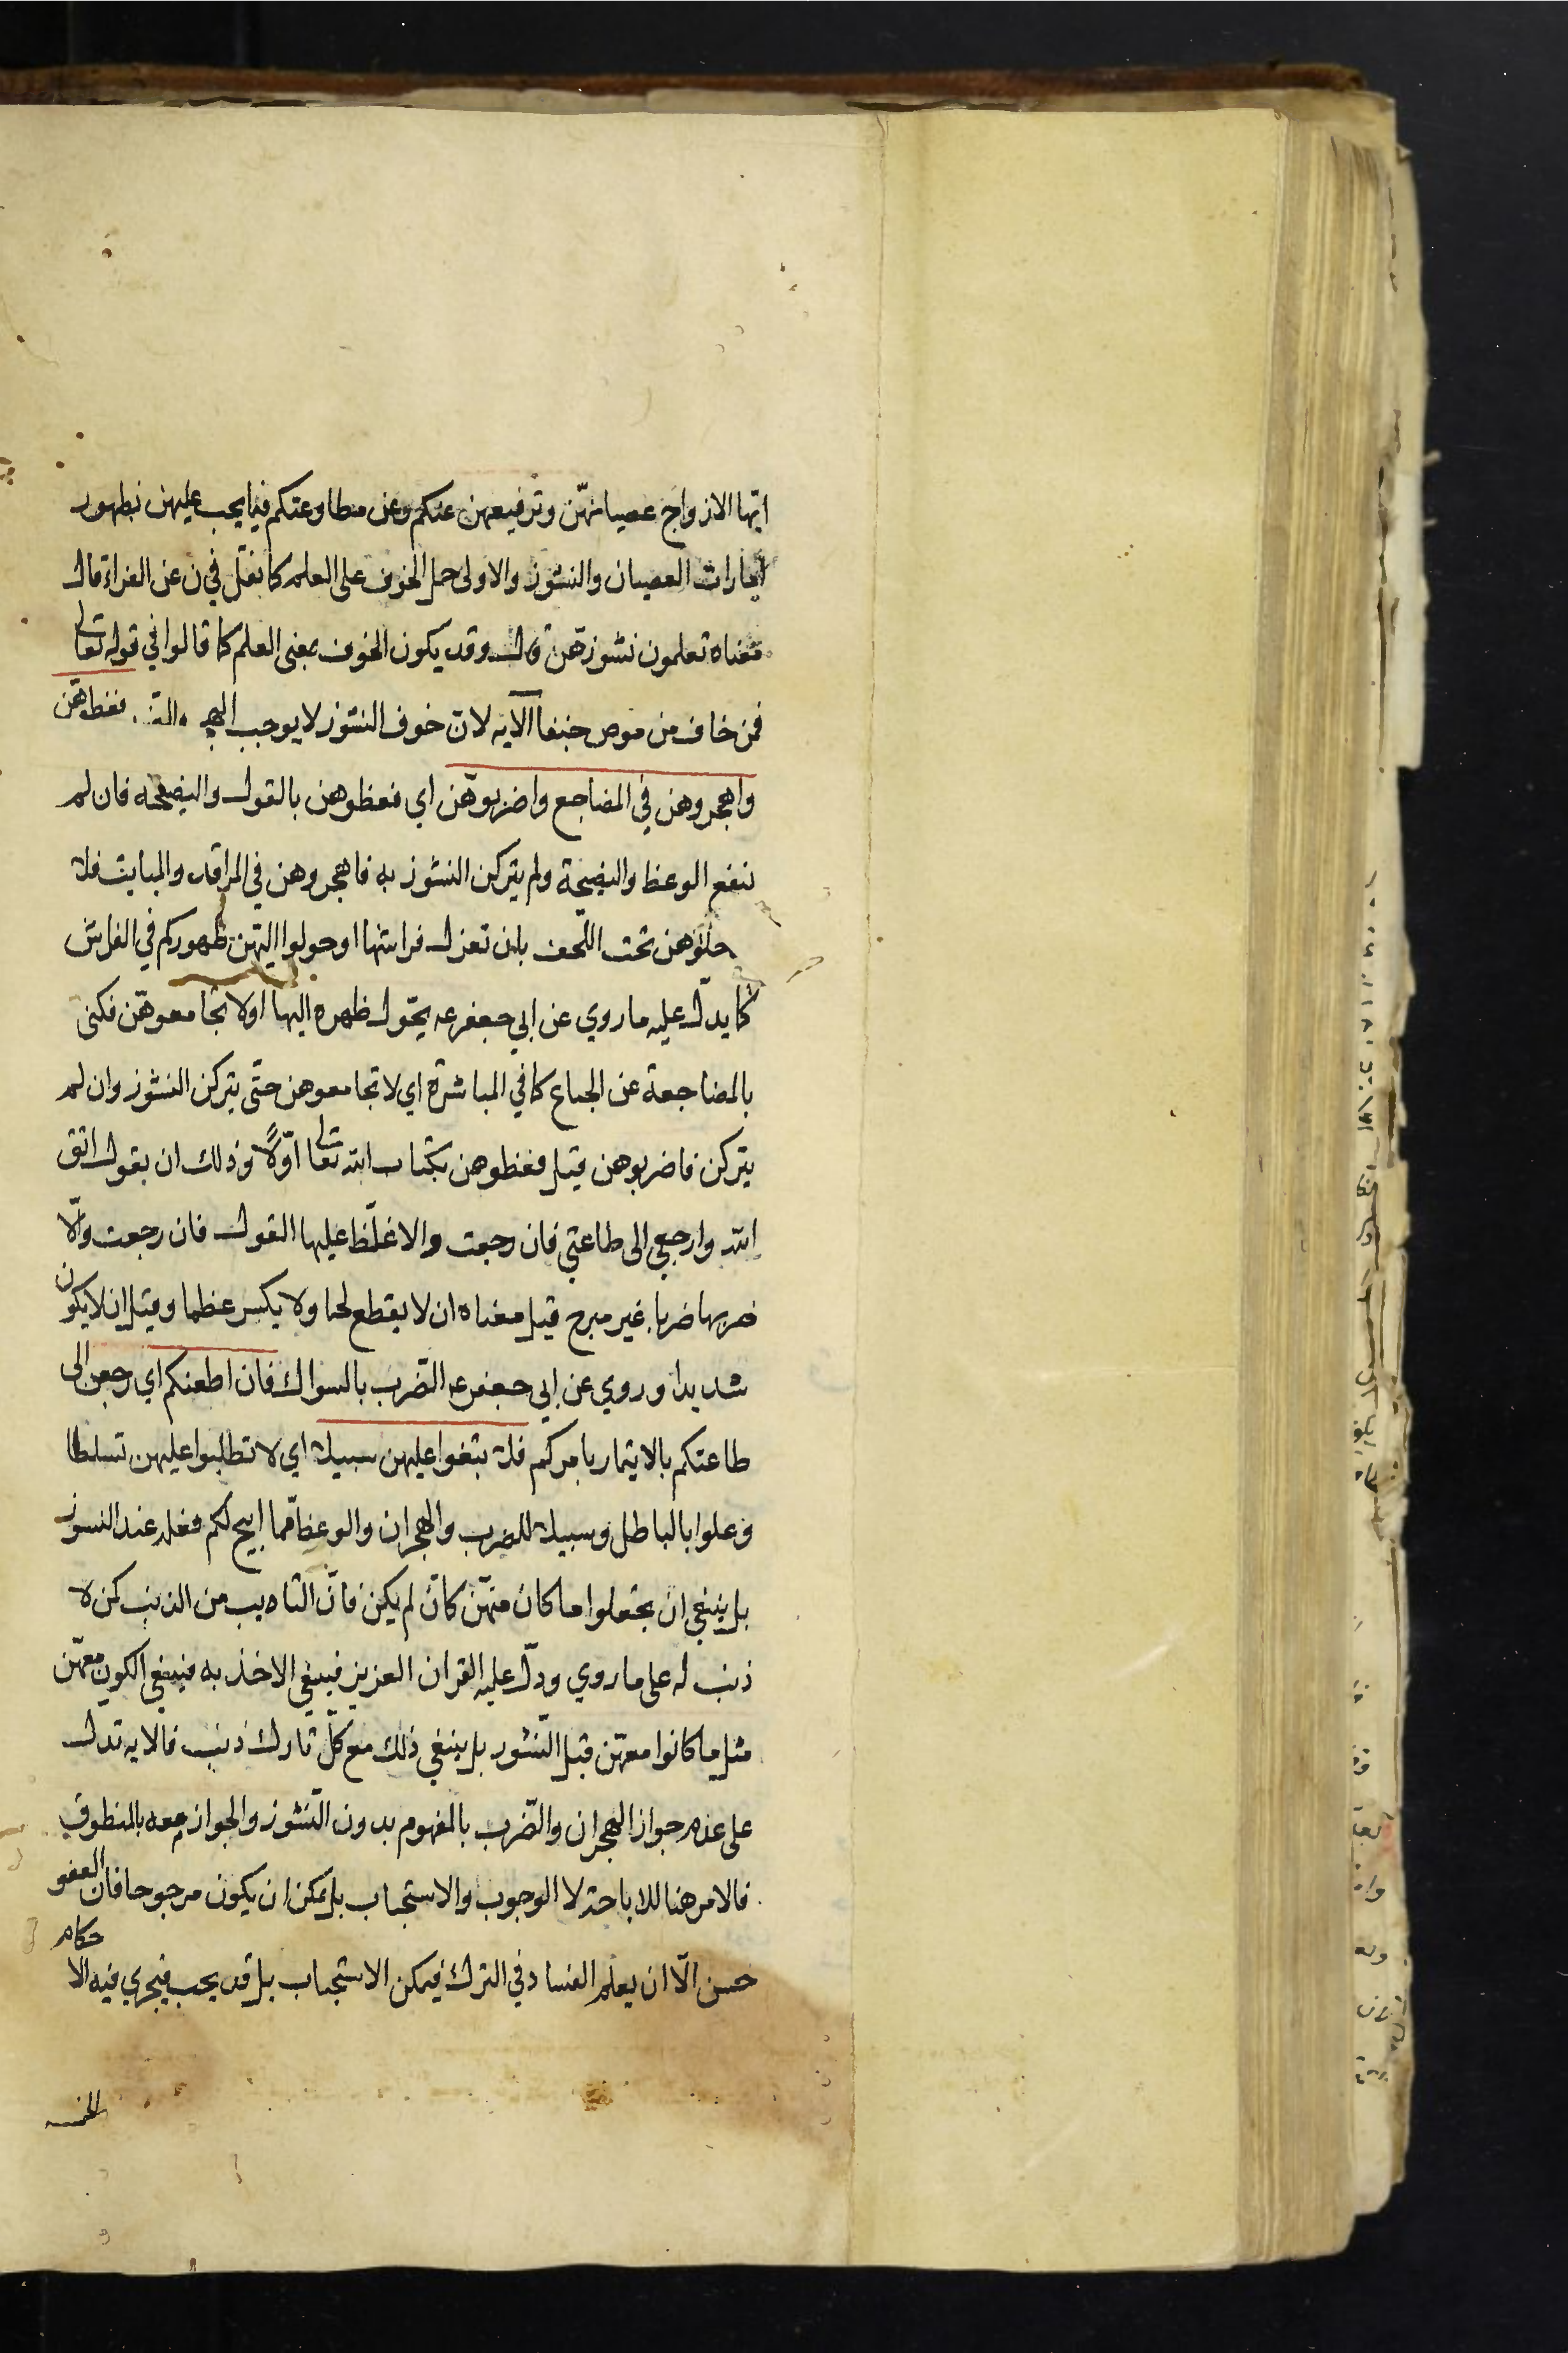 ايّها الازواج عصيانهنّ وترفيعهن عنكم وعن مطاوعتكم فيما يجب عليهن بظهور
امارات العصيان والنشوز والاولى حمل الخوف على العلم كما نقل في ن عن الفراء قال
معناه تعلمون نشوزهنّ قال وقد يكون الخوف بمعنى العلم كما قالوا في قوله تعالى
فمن خاف من موص جنفا الآيه لانّ خوف النشوز لا يوجب فعظوهنّ
واهجروهن في المضاجع واضربوهنّ اي فعظوهن بالقول والنصيحه فان لم
ينفع الوعظ والنصيحة ولم يتركن النشوز به فاهجروهن في المراقد والمبايت فلا
تدخلوهن تحت اللّحف بان تعزل فراشها او حولوا اليهنّ ظهوركم في الفراش
كما يدلّ عليه ما روي عن ابي جعفر عه يحّول ظهره اليها او لا تجامعوهنّ فكنى
بالمضاجعة عن الجماع كما في المباشرة اي لا تجامعوهن حتّى يتركن النشوز وان لم
يتركن فاضربوهن قيل فعظوهن بكتاب الله تعالى اوّلاً وذلك ان يقول اتق
الله وارجعي الى طاعتي فان رجعت والا غلّظ عليها القول فان رجعت والّا
ضربها ضربا غير مبرح قيل معناه ان لا يقطع لحما ولا يكسر عظما وقيل ان لا يكون
شديدا وروي عن ابي جعفر عه الضّرب بالسواك فان اطعنكم اي رجعن الى
طاعتكم بالايتمار بامركم فلا تبغوا عليهن سبيلا اي لا تطلبوا عليهن تسلطا
وعلوا بالباطل وسبيلا للضرب والهجران والوعظ ممّا ابيح لكم فعله عند النسوز
بل ينبغي ان يجعلوا ما كان منهنّ كان لم يكن فانّ التايب من الذنب كمن لا
ذنب له على ما روي ودلّ عليه القران العزيز فينبغي الاخذ به فينبغي الكون معهنّ
مثل ما كانوا معهنّ قبل النّشوز بل ينبغي ذلك مع كلّ تارك ذنب فالايه تدل
على عدم جواز الهجران والضّرب بالمفهوم بدون النّشوز والجواز معه بالمنطوق
فالامر هنا للاباحة لا الوجوب والاستحباب بل يمكن ان يكون مرجوحا فان العفو
حسن الّا ان يعلم الفساد في الترك فيمكن الاستحباب بل قد يجب فيجري فيه الاحكام
الخمسه